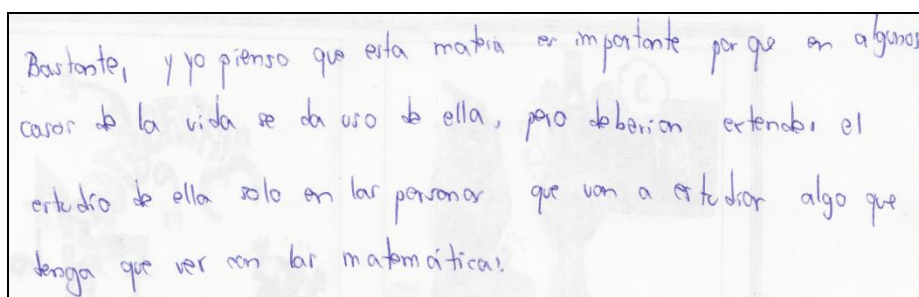 Bastante, y yo pienso que esta materia es importante por que en algunos
casos de la vida se da uso de ella, pero deberian extender el
estudio de ella solo en las personas que van a estudiar algo que
tenga que ver con las matemáticas.